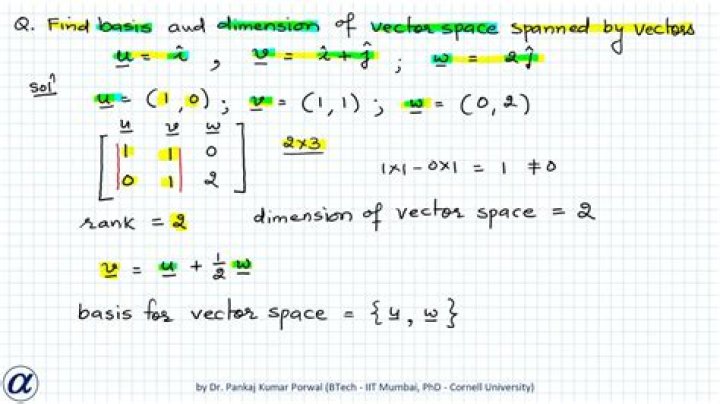 Q. Find basis and dimension of vector space spanned by vectors
u = î , v = î + ĵ ; w = 2ĵ
Solⁿ
u = (1, 0) ; v = (1, 1) ; w = (0, 2)
u v w
1 1 0
0 1 2
2×3
1×1 - 0×1 = 1 ≠ 0
rank = 2 dimension of vector space = 2
v = u + 1/2 w
basis for vector space = {u, w}
α by Dr. Pankaj Kumar Porwal (BTech - IIT Mumbai, PhD - Cornell University)